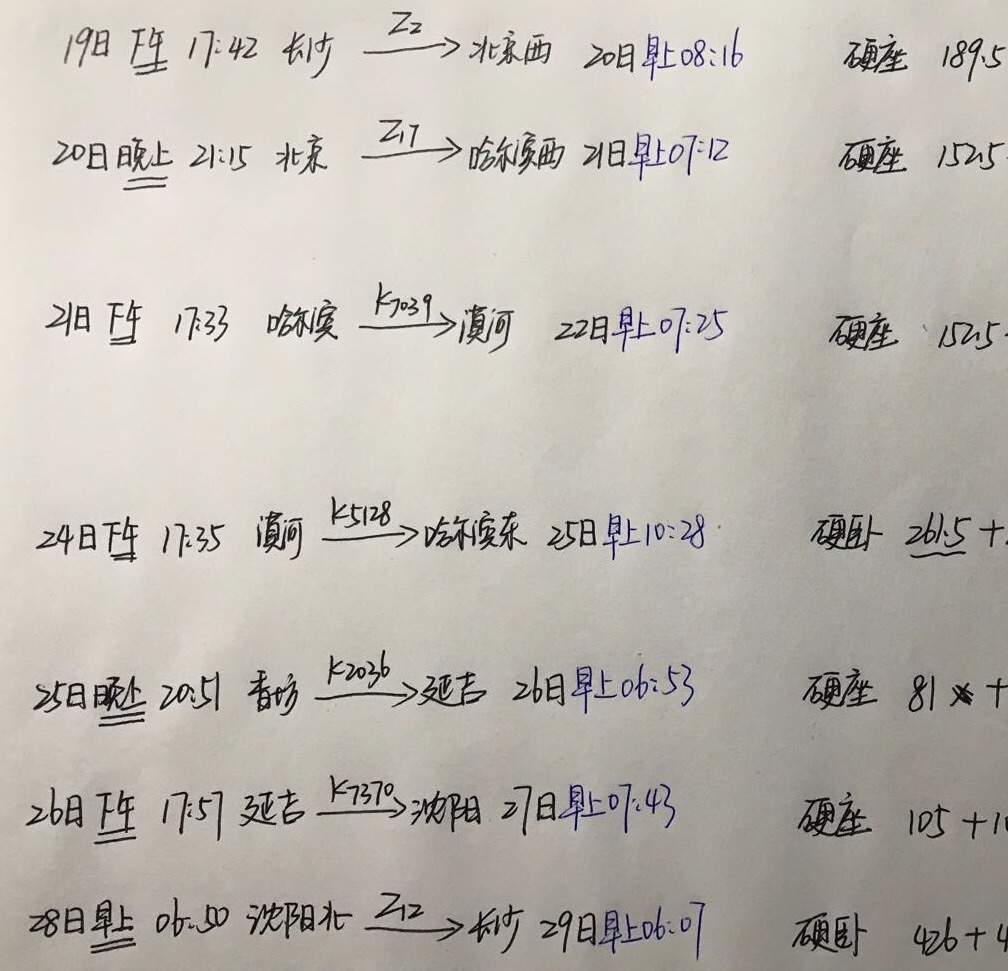 19日下午 17:42 长沙 Z2 → 北京西 20日早上08:16 硬座 189.5
20日晚上 21:15 北京 Z17 → 哈尔滨西 21日早上07:12 硬座 152.5
21日下午 17:33 哈尔滨 K7039 → 漠河 22日早上07:25 硬座 152.5
24日下午 17:35 漠河 K5128 → 哈尔滨东 25日早上10:28 硬卧 261.5 +
25日晚上 20:51 香坊 K2036 → 延吉 26日早上06:53 硬座 81 +
26日下午 17:57 延吉 K7370 → 沈阳 27日早上07:43 硬座 105 + 10
28日早上 06:50 沈阳北 Z12 → 长沙 29日早上06:07 硬卧 426 + 4